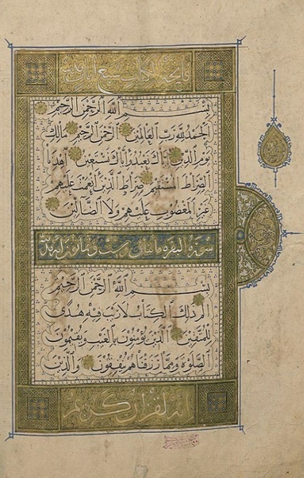 بِسْمِ اللَّهِ الرَّحْمَٰنِ الرَّحِيمِ
الْحَمْدُ لِلَّهِ رَبِّ الْعَالَمِينَ الرَّحْمَٰنِ الرَّحِيمِ مَالِكِ
يَوْمِ الدِّينِ إِيَّاكَ نَعْبُدُ وَإِيَّاكَ نَسْتَعِينُ اهْدِنَا
الصِّرَاطَ الْمُسْتَقِيمَ صِرَاطَ الَّذِينَ أَنْعَمْتَ عَلَيْهِمْ
غَيْرِ الْمَغْضُوبِ عَلَيْهِمْ وَلَا الضَّالِّينَ
سورة البقرة مائتان وست وثمانون اية
بِسْمِ اللَّهِ الرَّحْمَٰنِ الرَّحِيمِ
الم ذَٰلِكَ الْكِتَابُ لَا رَيْبَ فِيهِ هُدًى
لِلْمُتَّقِينَ الَّذِينَ يُؤْمِنُونَ بِالْغَيْبِ وَيُقِيمُونَ
الصَّلَوةَ وَمِمَّا رَزَقْنَاهُمْ يُنْفِقُونَ وَالَّذِينَ
انه لقران كريم